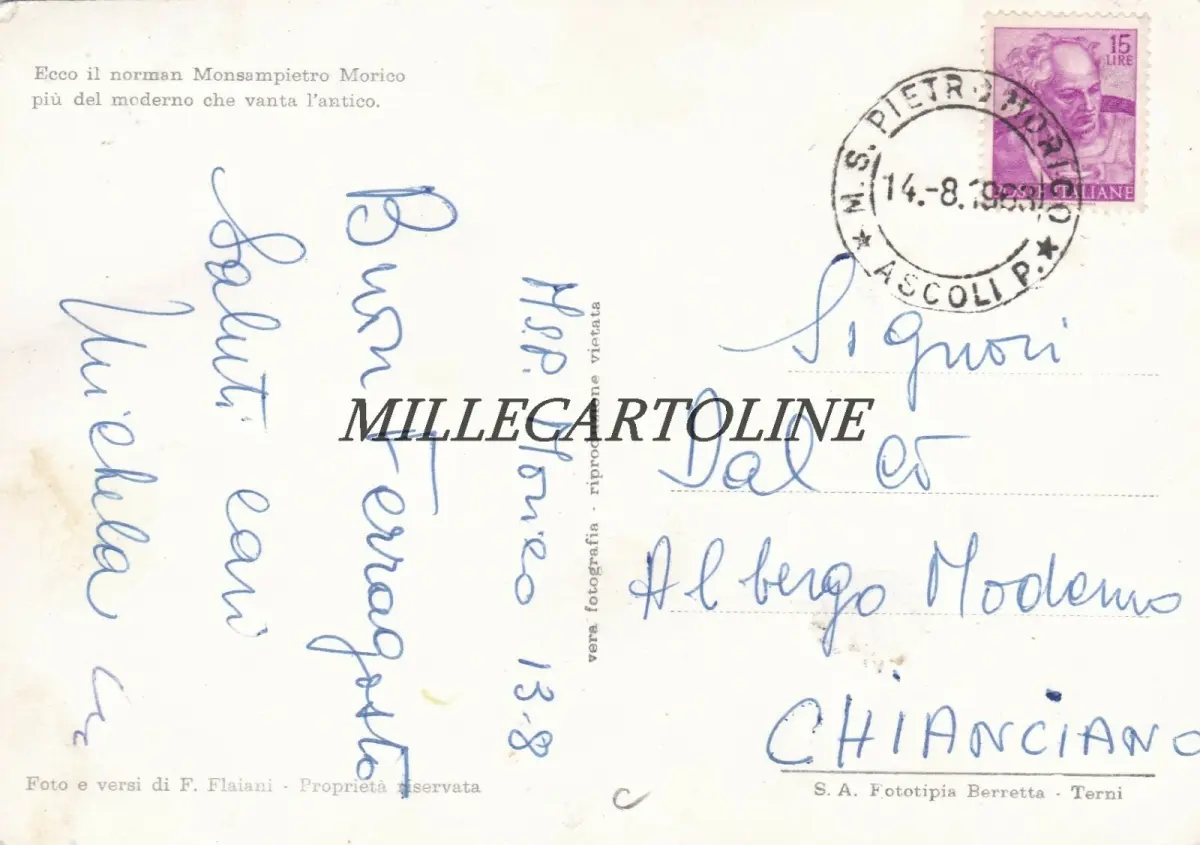 Ecco il norman Monsampietro Morico
più del moderno che vanta l'antico.
15
LIRE
POSTE ITALIANE
M. S. PIETRO MORICO
14.-8.1963
★ ASCOLI P. ★
M.S.P. Morico 13-8
Buon Ferragosto
Saluti cari
Michela
vera fotografia - riproduzione vietata
MILLECARTOLINE
Signori
Dal Cò
Albergo Moderno
CHIANCIANO
Foto e versi di F. Flaiani - Proprietà riservata
S. A. Fototipia Berretta - Terni